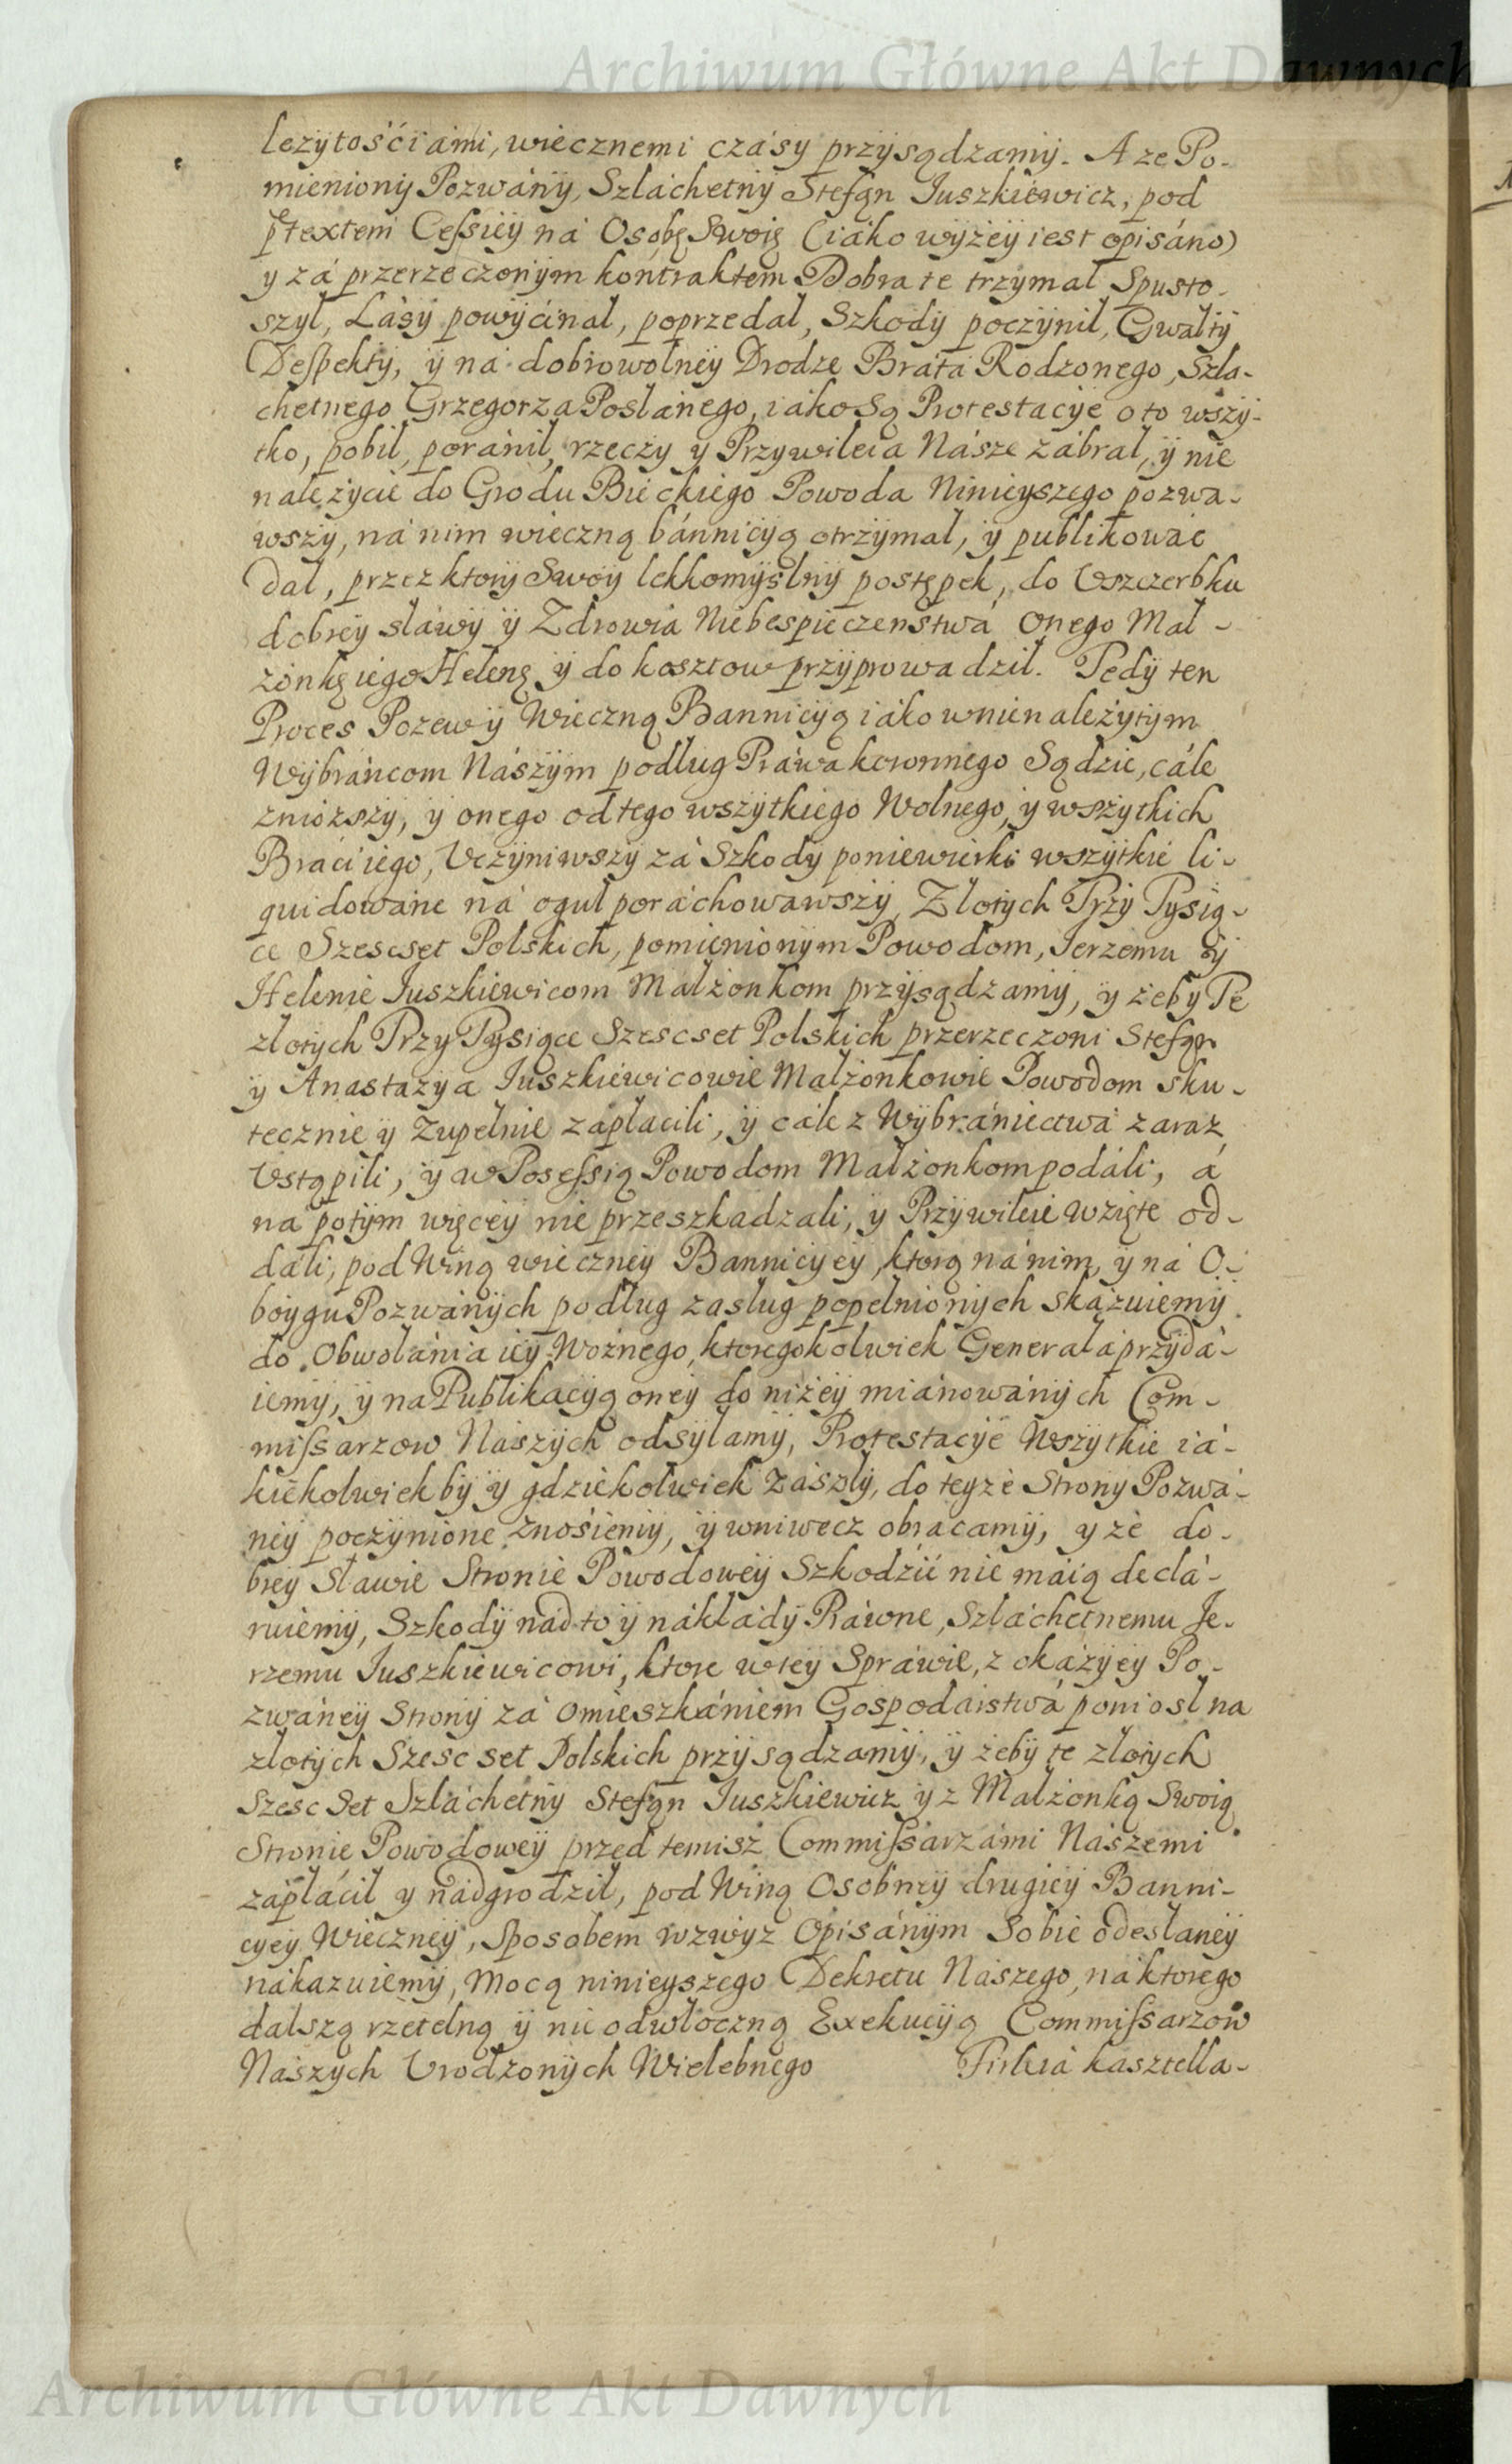 Archiwum Główne Akt Dawnych
leżytośćiámi, wiecznemi czásy przysądzamy. A ze Po-
mieniony Pozwány, Szláchetny Stefąn Juszkiewicz, pod
ptextem Cessiey ná Osobę Swoię (iáko wyżey iest opisáno)
y zá przerzeczonym kontraktem Dobra te trzymał Spusto-
szył, Lásy powyćinał, poprzedał, Szkody poczynił, Gwałty
Despekty, y ná dobrowolney Drodze Bráta Rodzonego, Szla-
chetnego Grzegorza Posłánego, iáko Są Protestacye o to wszy-
tko, pobił, poránił, rzeczy y Przywileia Násze zábrał, y nie
należycie do Grodu Bieckiego Powoda Ninieyszego pozwa-
wszy, ná nim wieczną bánnicyą otrzymał, y publikowác
dał, przez ktory Swoy lekkomyslny postępek, do Vszczerbku
dobrey sławy y Zdrowia Niebespieczenstwá Onego Mał-
żonkę iego Helenę y do kosztow przyprowadził. Tedy ten
Proces Pozew y Wieczną Bannicyą iáko w nienależytym
Wybráncom Nászym podług Práwa koronnego Sądzie, cále
zniozszy, y onego od tego wszytkiego Wolnego, y wszytkich
Bráci iego, Vczyniwszy zá Szkody poniewierki wszytkie li-
quidowáne ná oguł poráchowawszy, Złotych Trzy Tysią-
ce Szescset Polskich, pomienionym Powodom, Jerzemu y
Helenie Juszkiewicom Małżonkom przysądzamy, y żeby Te
złotych Trzy Tysiące Szescset Polskich przerzeczoni Stefąn
y Anastazya Juszkiewicowie Małżonkowie Powodom sku-
tecznie y Zupełnie zápłacili, y cále z Wybránictwá zaraz
Vstąpili, y w Posessią Powodom Małżonkom podáli, á
ná potym więcey nie przeszkadzali, y Przywileie wzięte od-
dáli, pod Winą wieczney Bannicyey, ktorą ná nim, y ná O-
boygu Pozwánych podług zasług popełnionych skázuiemy
do Obwołánia iey Woźnego, ktoregokolwiek Generała przydá-
iemy, y na Publikacyą oney do niżey miánowánych Com-
missarzow Nászych odsyłamy, Protestacye Wszytkie iá-
kiekolwiek by y gdziekolwiek Zászły, do teyże Strony Pozwá-
ney poczynione znośiemy, y wniwecz obracamy, y że do-
brey Sławie Stronie Powodowey Szkodzić nie máią declá-
ruiemy, Szkody nadto y nákłády Práwne, Szláchetnemu Je-
rzemu Juszkiewicowi, ktore w tey Spráwie, z okázyey Po-
zwáney Strony zá Omieszkániem Gospodárstwá poniosł na
złotych Szesc set Polskich przysądzamy, y żeby te złotych
Szesc Set Szláchetny Stefąn Juszkiewicz y z Małżonką Swoią
Stronie Powodowey przed temisz Commissarzámi Nászemi
zápłácił y nádgrodził, pod Winą Osobney drugiey Banni-
cyey Wieczney, Sposobem wzwyz Opisánym Sobie odesłaney
nákazuiemy, Mocą ninieyszego Dekretu Nászego, ná ktorego
dalszą rzetelną y nieodwłoczną Exekucyą Commissarzow
Nászych Vrodzonych Wielebnego Firleiá kasztella-
Archiwum Główne Akt Dawnych